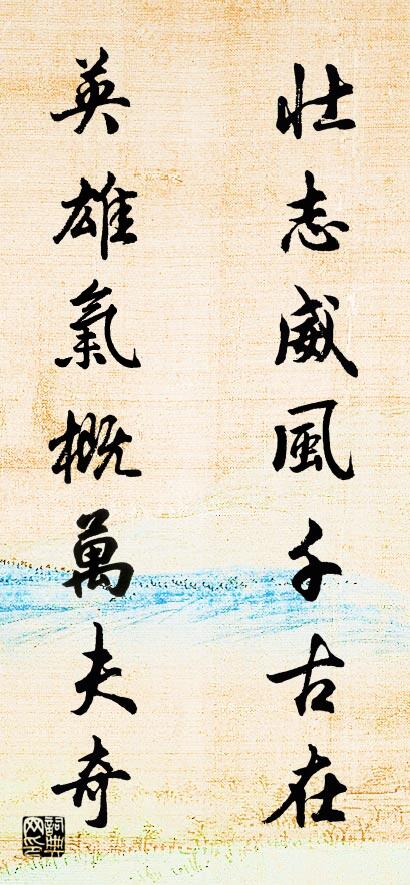 壯志威風千古在
英雄氣概萬夫奇
詞典网印